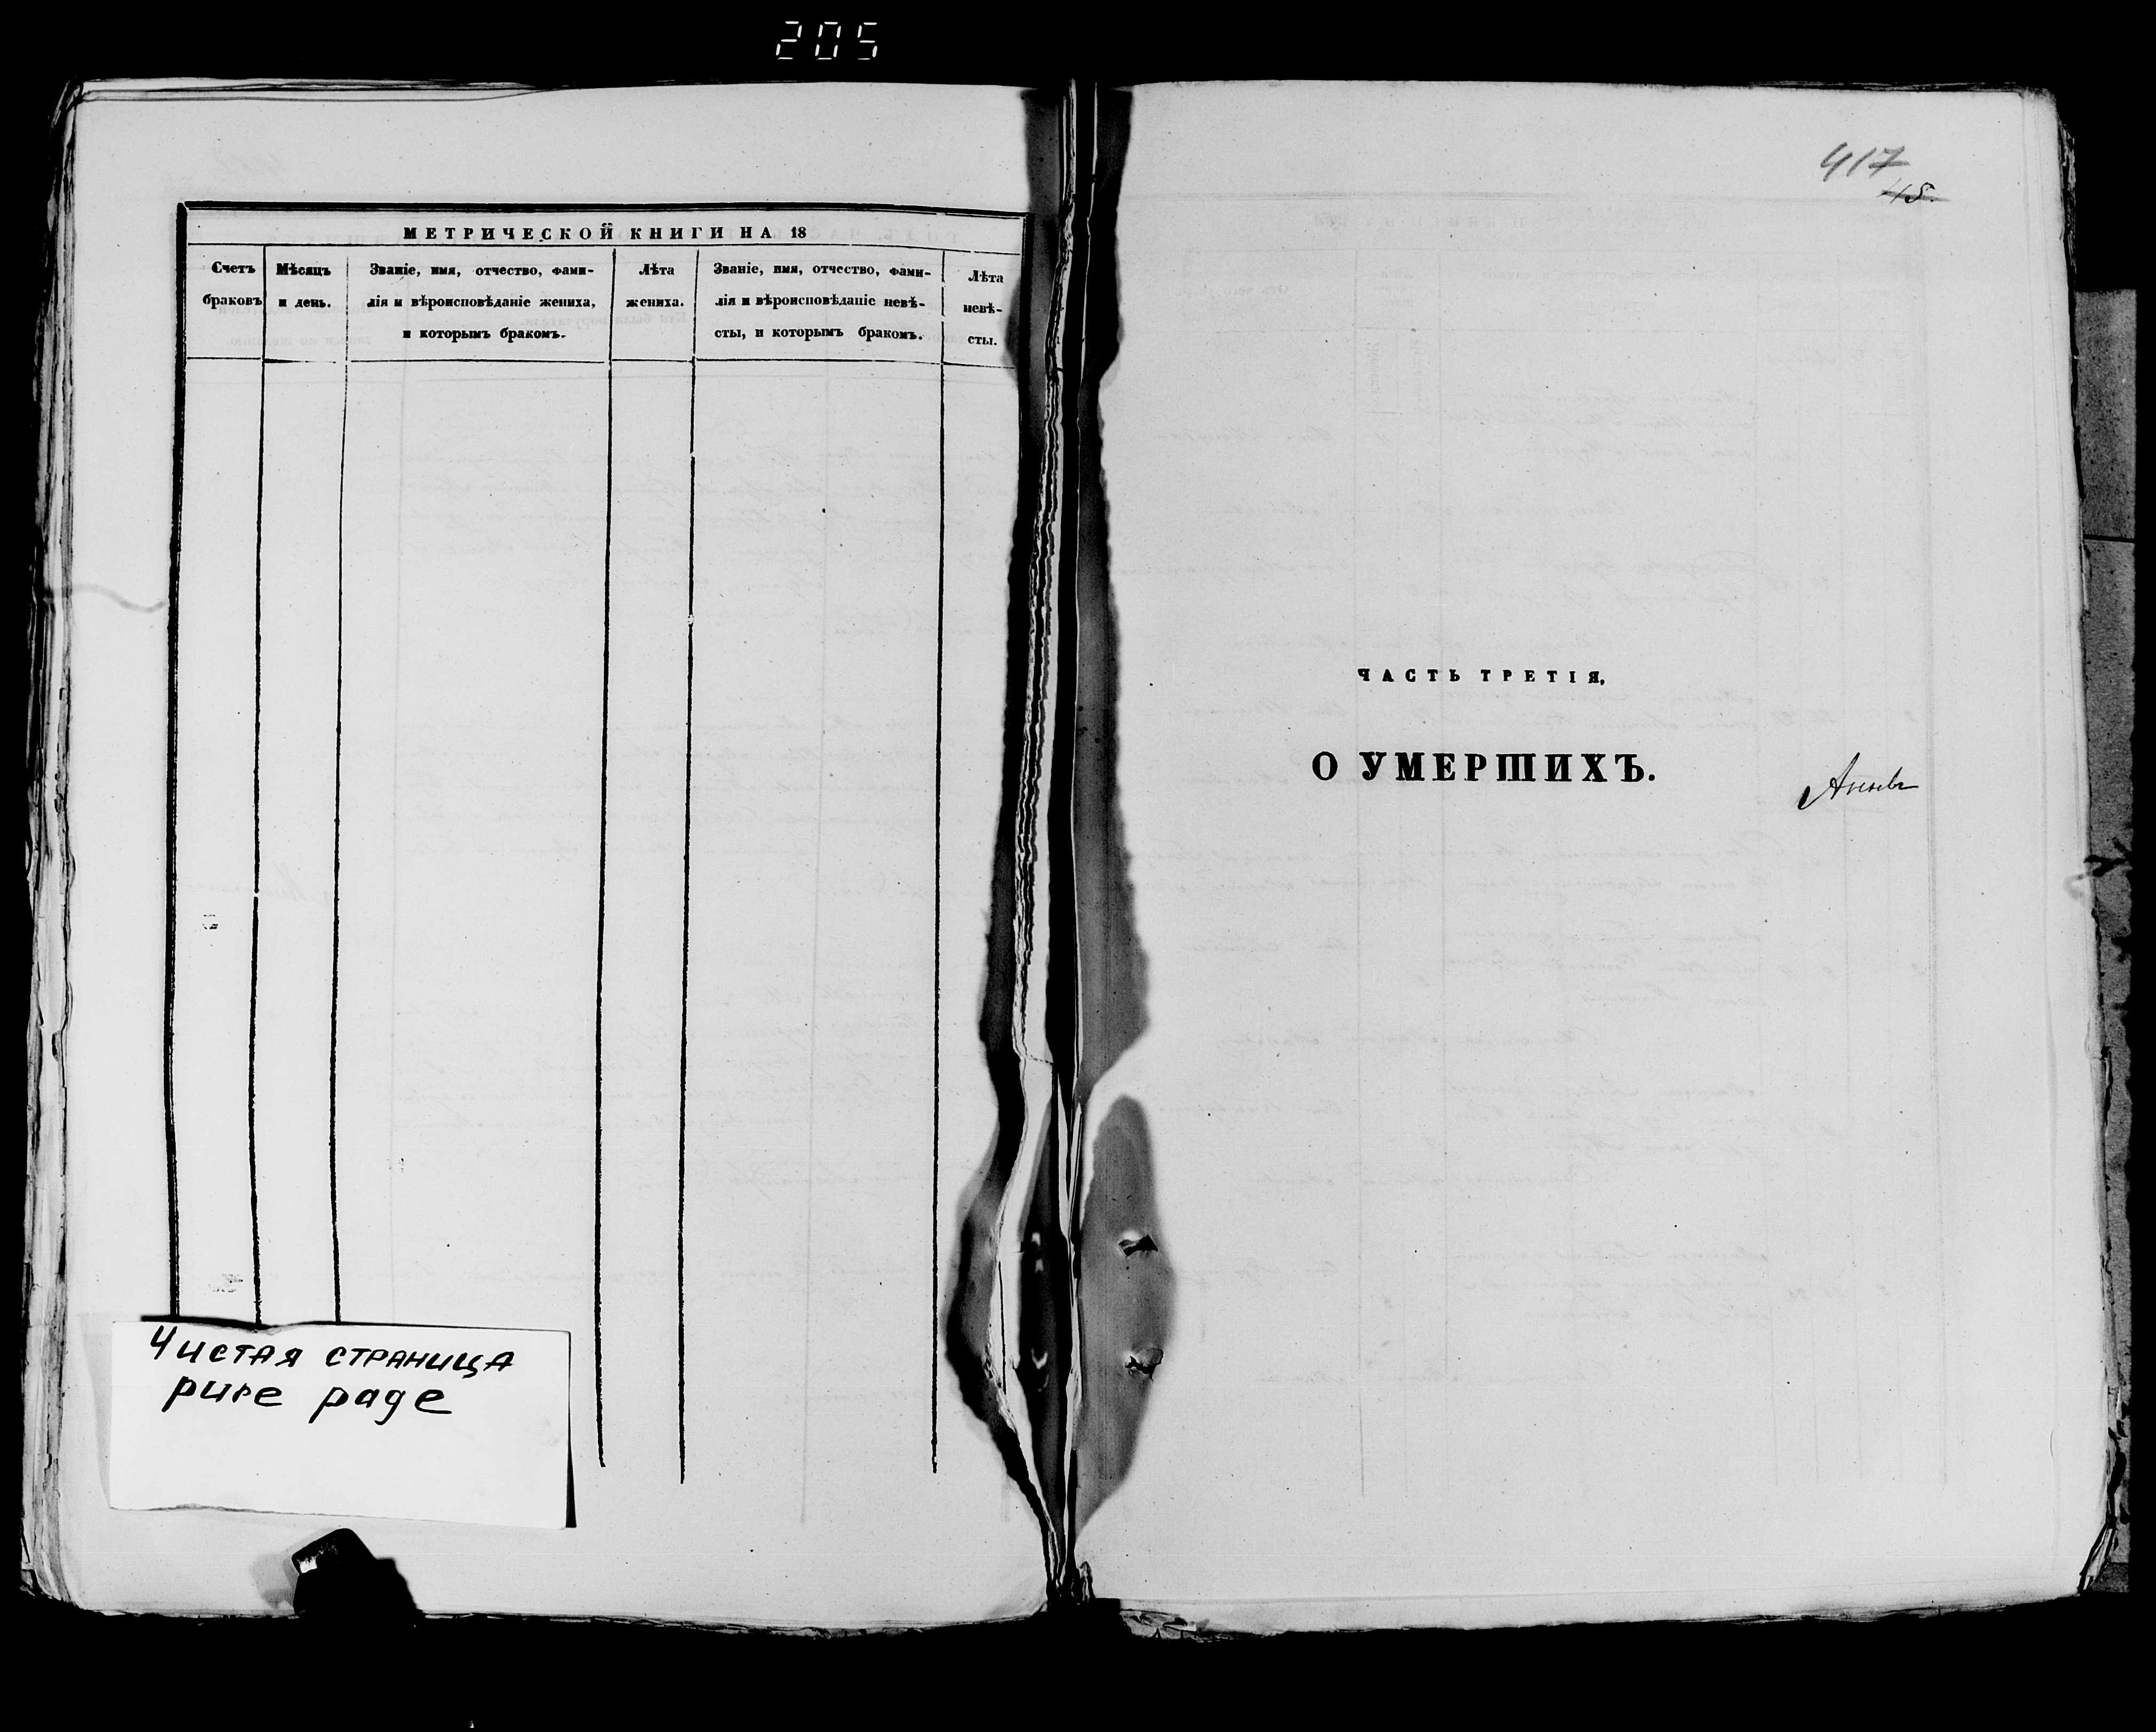 205
МЕТРИЧЕСКОЙ КНИГИ НА 18
Счетъ браковъ
Мѣсяцъ и день.
Званіе, имя, отчество, фами-
лія и вѣроисповѣданіе жениха,
и которымъ бракомъ.
Лѣта жениха.
Званіе, имя, отчество, фами-
лія и вѣроисповѣданіе невѣ-
сты, и которымъ бракомъ.
Лѣта невѣ-
сты.
Чистая страница
pure page
417
45.
ЧАСТЬ ТРЕТІЯ,
О УМЕРШИХЪ.